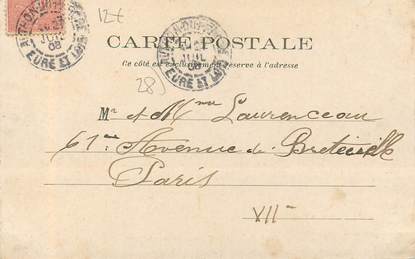 12€
AUTHON-DU-PERCHE
JUIL
08
EURE ET LOIR
CARTE POSTALE
Ce côté est exclusivement réservé à l'adresse
AUTHON-DU-PERCHE
JUIL
08
EURE ET LOIR
28)
Mr et Mme Laurenceau
61 Avenue de Breteuil
Paris
VII